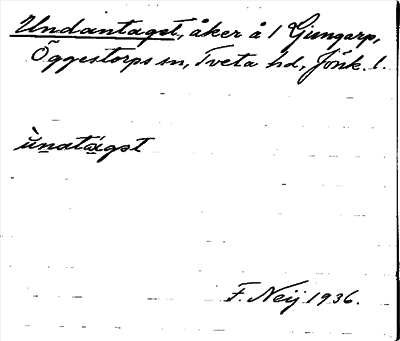 Undantagst, åker å 1 Ljungarp,
Öggestorps sn, Tveta hd, Jönk. l.
ùnatágst
F. Neij 1936.